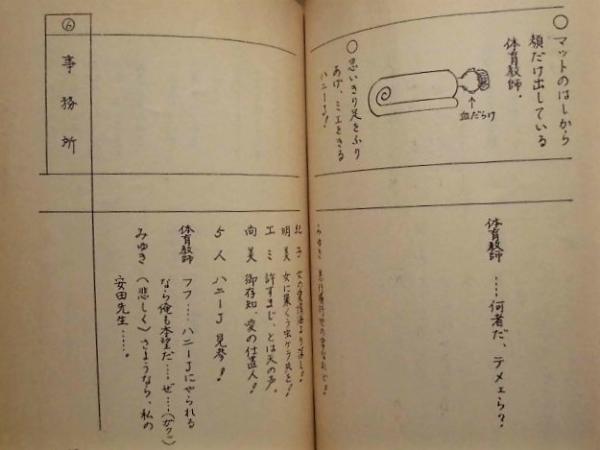 ○マットのはしから
顔だけ出している
体育教師。
血だらけ
○思いきり足をふり
あげ、ミエをきる
ハニーJ！
体育教師 ……何者だ、テメェら？
みゆき
明美 女に巣くう虫ケラ共を！
エミ 許すまじ、とは天の声。
尚美 御存知、愛の仕置人！
5人 ハニーJ 見参！
⑥ 事務所
体育教師 フフ……ハニーJにやられる
なら俺も本望だ……ぜ……(ガクッ)
みゆき (悲しく)さようなら、私の
安田先生……。